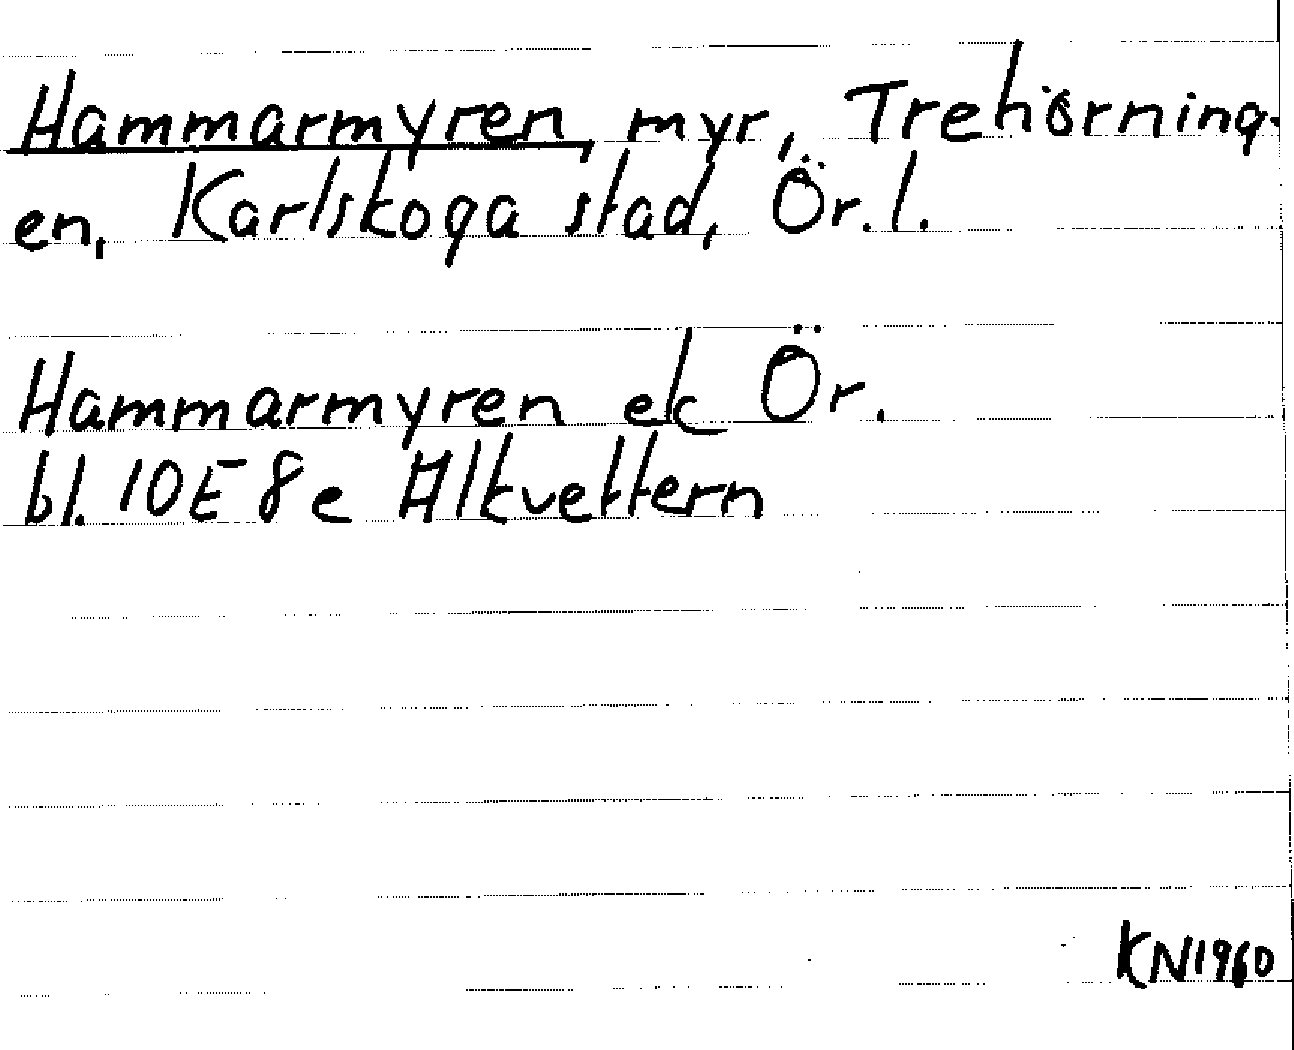 Hammarmyren, myr, Trehörning-
en, Karlskoga stad, Ör. l.
Hammarmyren ek Ör.
bl. 10E 8e Alkvettern
KN1960